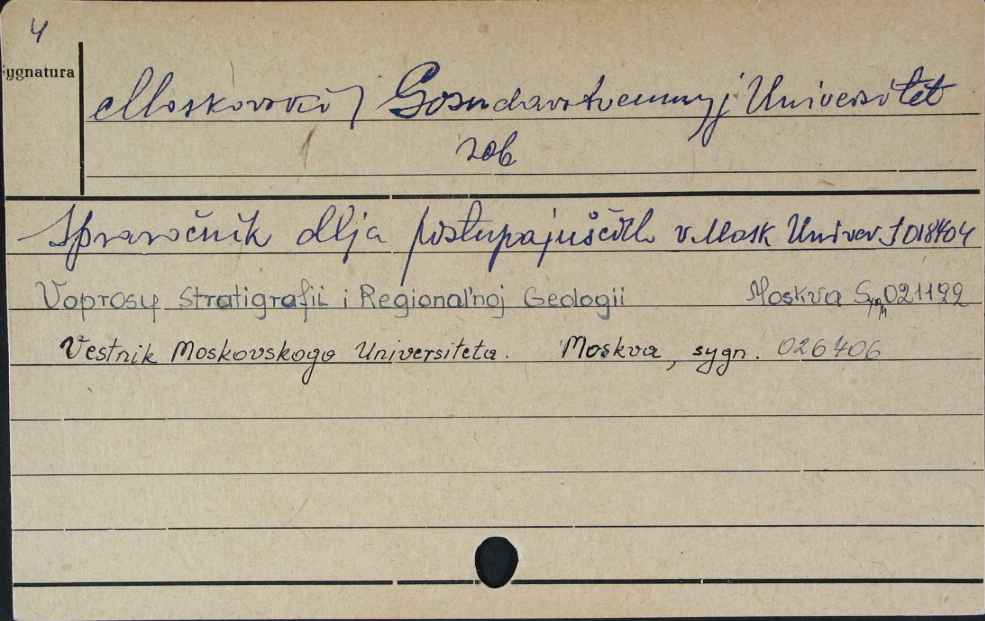 4
ygnatura
Moskovskij Gosudarstvennyj Universitet
zob
Spravočnik dlja postupajuščich v Mosk Univer. S 018404
Voprosy Stratigrafii i Regional'noj Geologii Moskva Sygn 021192
Vestnik Moskovskogo Universiteta. Moskva, sygn. 026406